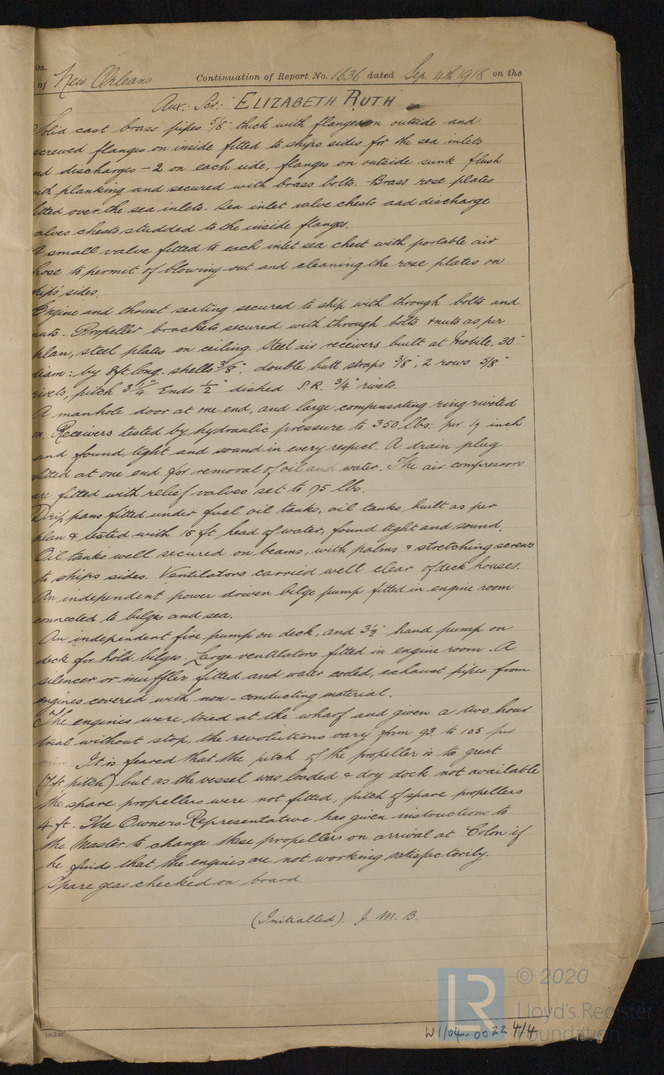 of New Orleans Continuation of Report No. 1636 dated Sep. 4th 1918 on the
Aux: Scr: "ELIZABETH RUTH"
Solid cast brass pipes 5/8" thick with flanges on outside and
screwed flanges on inside fitted to ships sides for the sea inlets
nd discharges - 2 on each side, flanges on outside sunk flush
planking and secured with brass bolts. Brass rose plates
itted over the sea inlets. Sea inlet valve chests and discharge
alves chests studded to the inside flanges.
A small valve fitted to each inlet sea chest with portable air
hose to permit of blowing out and cleaning the rose plates on
hips sides.
Engine and thrust seating secured to ship with through bolts and
nuts. Propeller brackets secured with through bolts & nuts as per
plan, steel plates on ceiling. Steel air receivers built at Mobile, 30"
diam: by 8ft long. shells 3/8", double butt straps 3/8", 2 rows 5/8"
rivets, pitch 3 1/4" Ends 1/2" dished S.R. 3/4" rivets.
A manhole door at one end, and large compensating ring riveted
on. Receivers tested by hydraulic pressure to 350 lbs. per sq inch
and found tight and sound in every respect. A drain plug
fitted at one end for removal of oil and water. The air compressors
are fitted with relief valves set to 75 lbs.
Drip pans fitted under fuel oil tanks, oil tanks built as per
plan & tested with 15 ft head of water, found tight and sound.
Oil tanks well secured on beams, with palms & stretching screws
to ships sides. Ventilators carried well clear of deck houses.
An independent power driven bilge pump fitted in engine room
connected to bilges and sea.
An independent fire pump on deck, and 3 1/2" hand pump on
deck for hold bilges. Large ventilators fitted in engine room. A
silencer or muffler fitted and water cooled, exhaust pipes from
engines covered with non-conducting material.
The engines were tried at the wharf and given a two hour
trial without stop, the revolutions vary from 93 to 105 per
min. It is feared that the pitch of the propeller is to great
(7ft pitch) but as the vessel was loaded & dry dock not available
the spare propellers were not fitted, pitch of spare propellers
4 ft. The Owners Representative has given instruction to
the Master to change these propellers on arrival at Colon if
he finds that the engines are not working satisfactorily.
Spare gear checked on board.
(Initialled). J. M. B.
© 2020
LR
Lloyd's Register
Foundation
W1104-0022 4/4